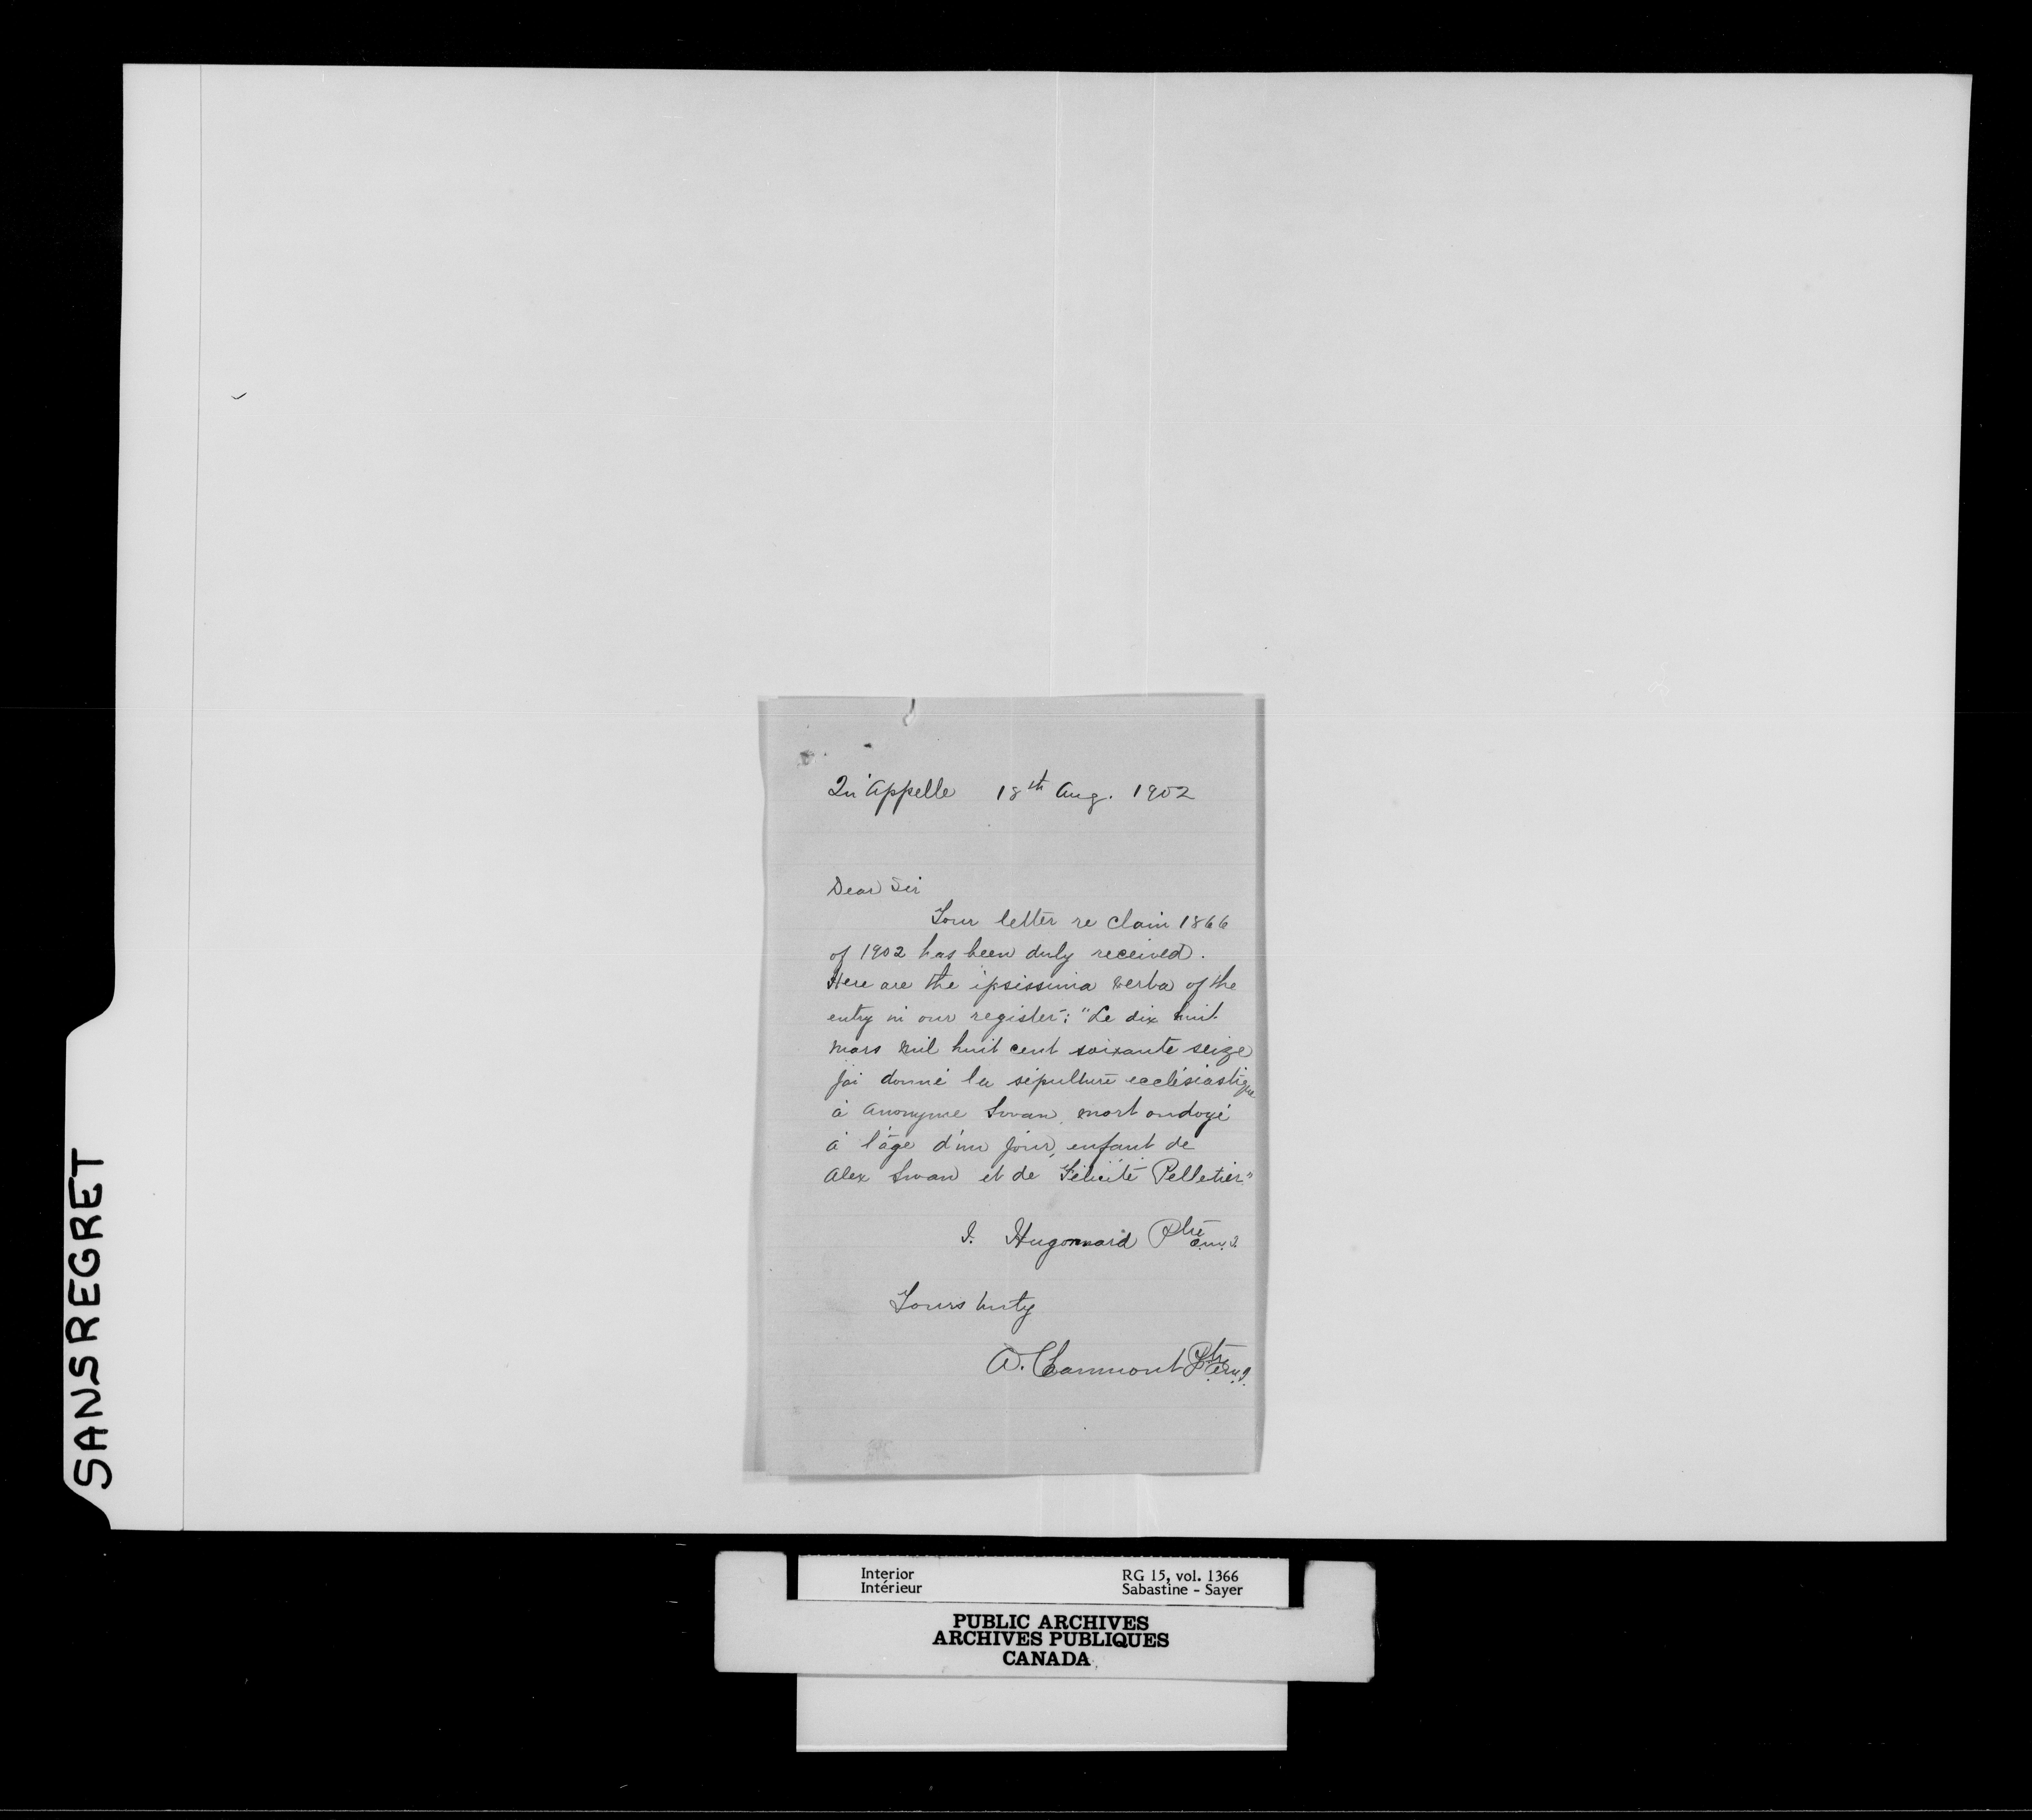 Qu'Appelle 18th Aug. 1902
Dear Sir
Your letter re claim 1866
of 1902 has been duly received.
Here are the ipsissima verba of the
entry in our register: "Le dix huit
mars mil huit cent soixante seize
j'ai donné la sépulture ecclésiastique
à Anonyme Swan, mort ondoyé
à l'âge d'un jour, enfant de
Alex Swan et de Félicité Pelletier"
J. Hugonnard Ptre
o.m.I.
Yours truly
A. Charmont Ptre
o.m.I.
SANSREGRET
Interior RG 15, vol. 1366
Intérieur Sabastine - Sayer
PUBLIC ARCHIVES
ARCHIVES PUBLIQUES
CANADA